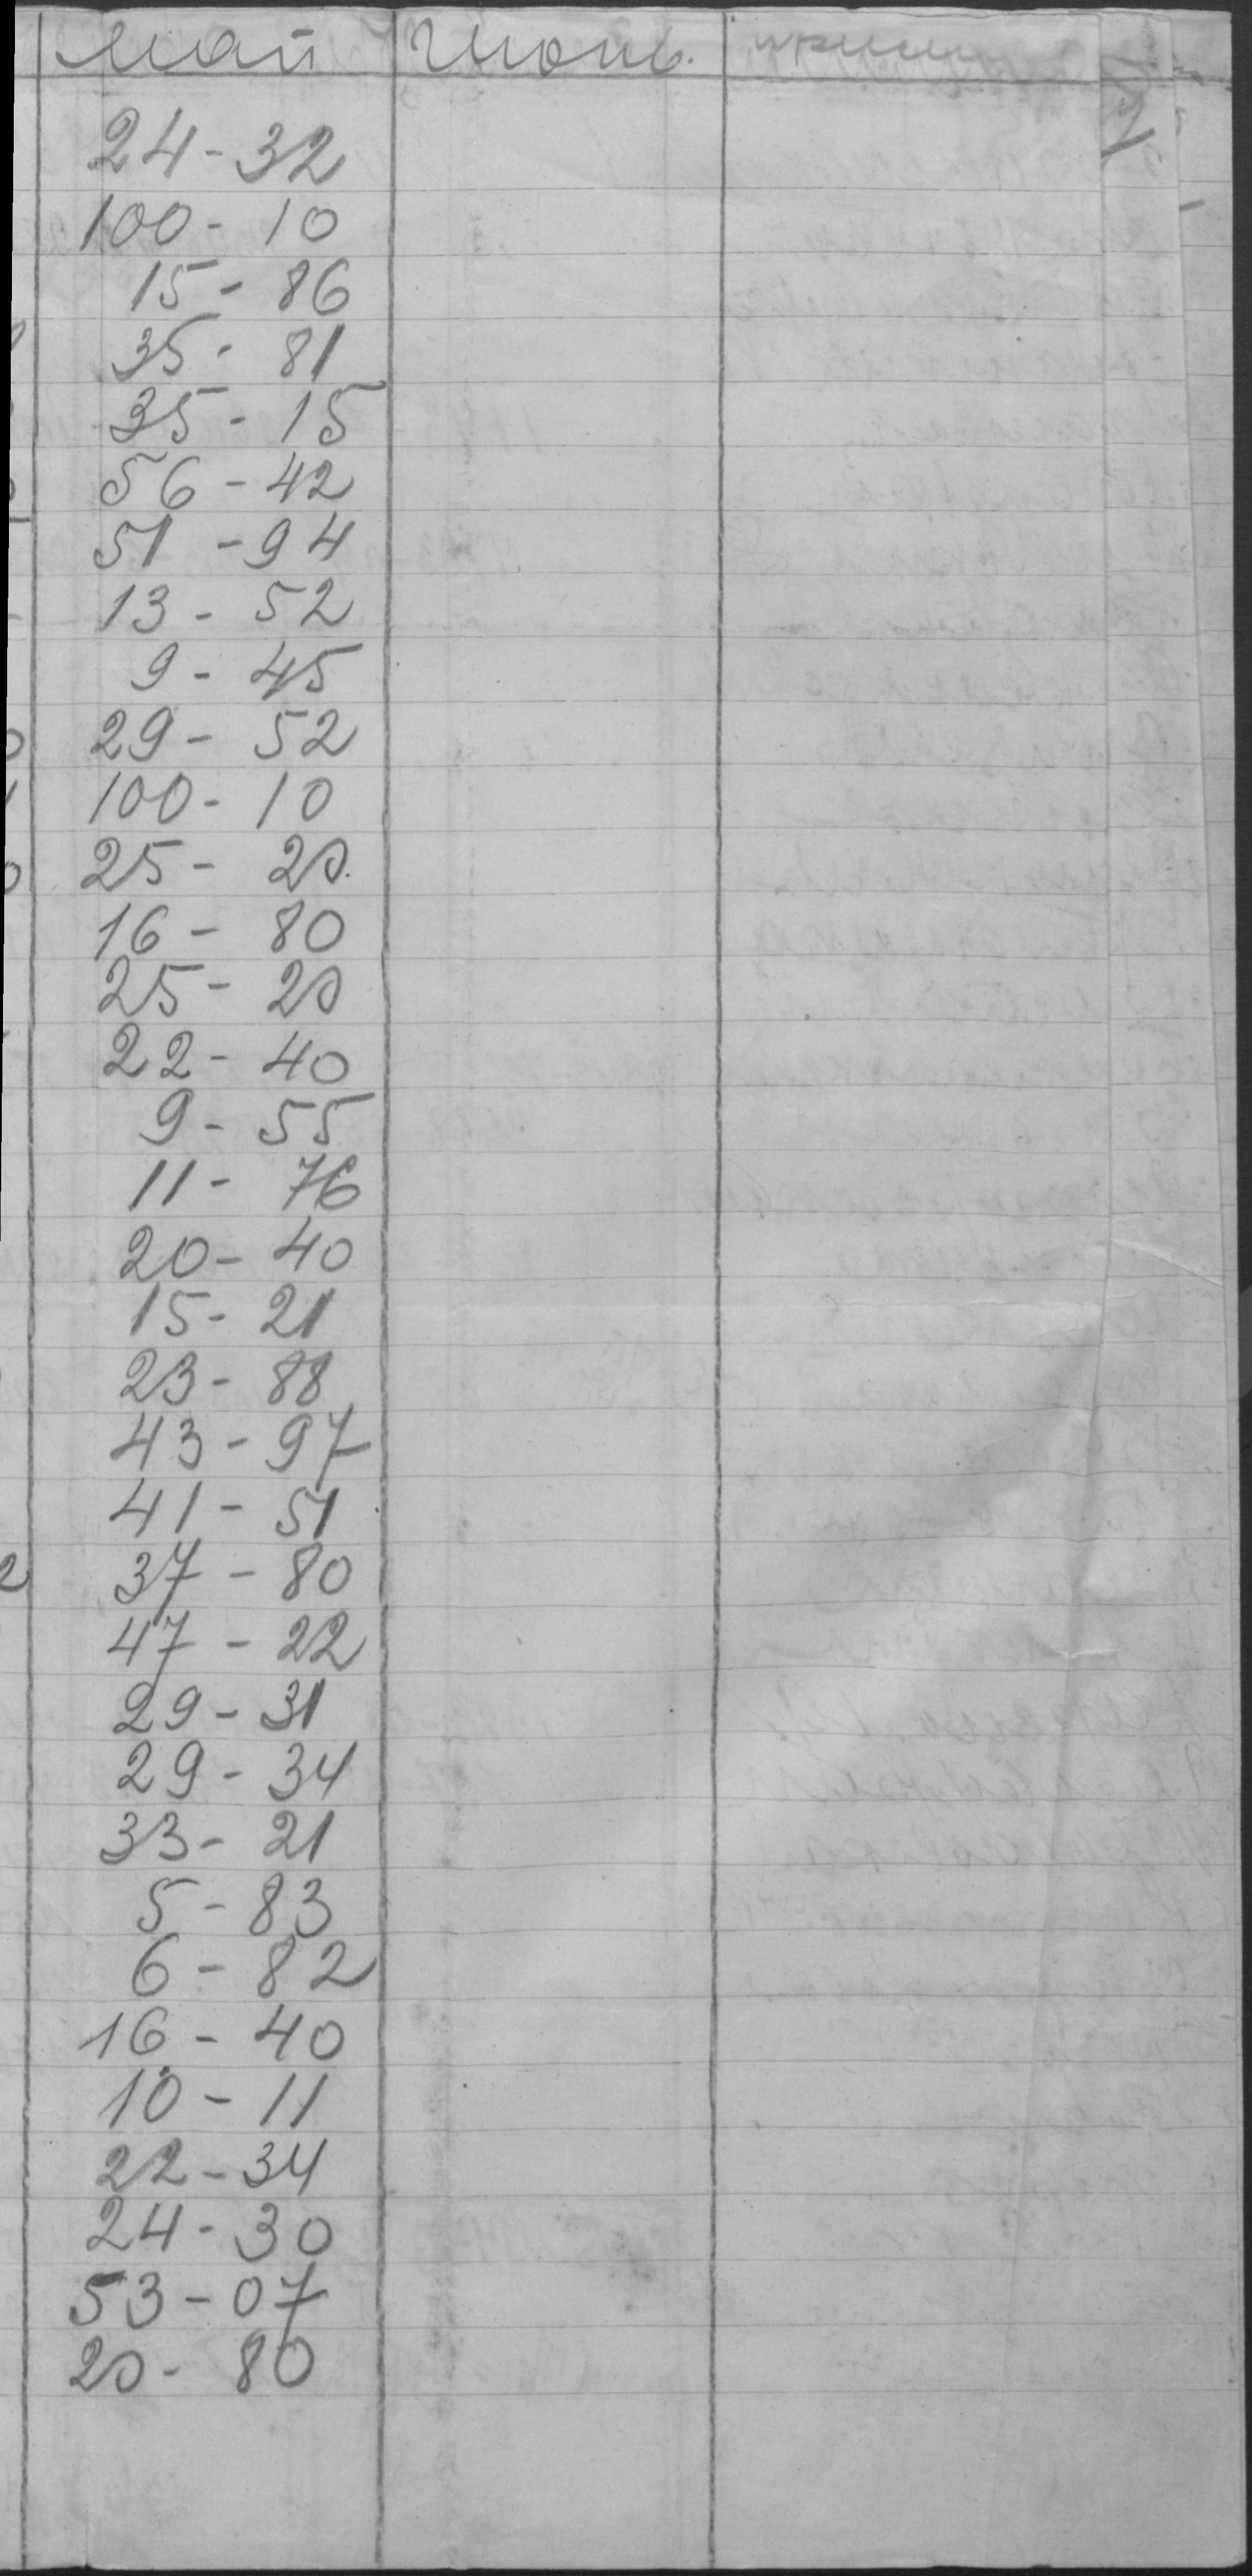 май июнь.
24-32
100-10
15-86
35-81
35-15
56-42
51-94
13-52
9-45
29-52
100-10
25-20
16-80
25-20
22-40
9-55
11-76
20-40
15-21
23-88
43-97
41-51
37-80
47-22
29-31
29-34
33-21
5-83
6-82
16-40
10-11
22-34
24-30
53-07
20-80